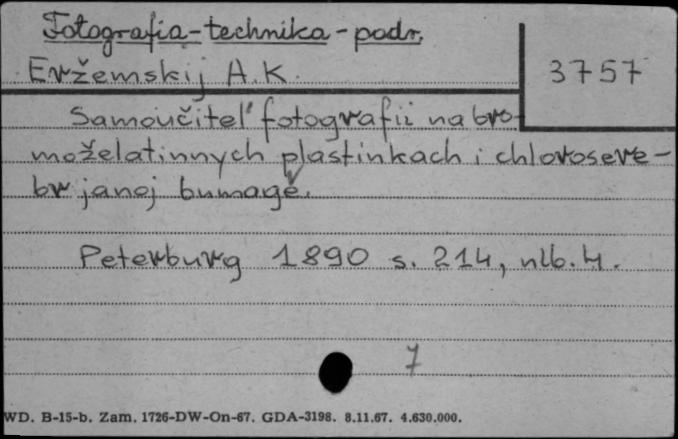 Fotografia-technika-podr.
Evžemskij A.K.
3757
Samoučitel' fotografii na bro-
moželatinnych plastinkach i chlorosere-
brjanoj bumagě.
Peterburg 1890 s. 214, nlb. 4.
7
WD. B-15-b. Zam. 1726-DW-On-67. GDA-3198. 8.11.67. 4.630.000.